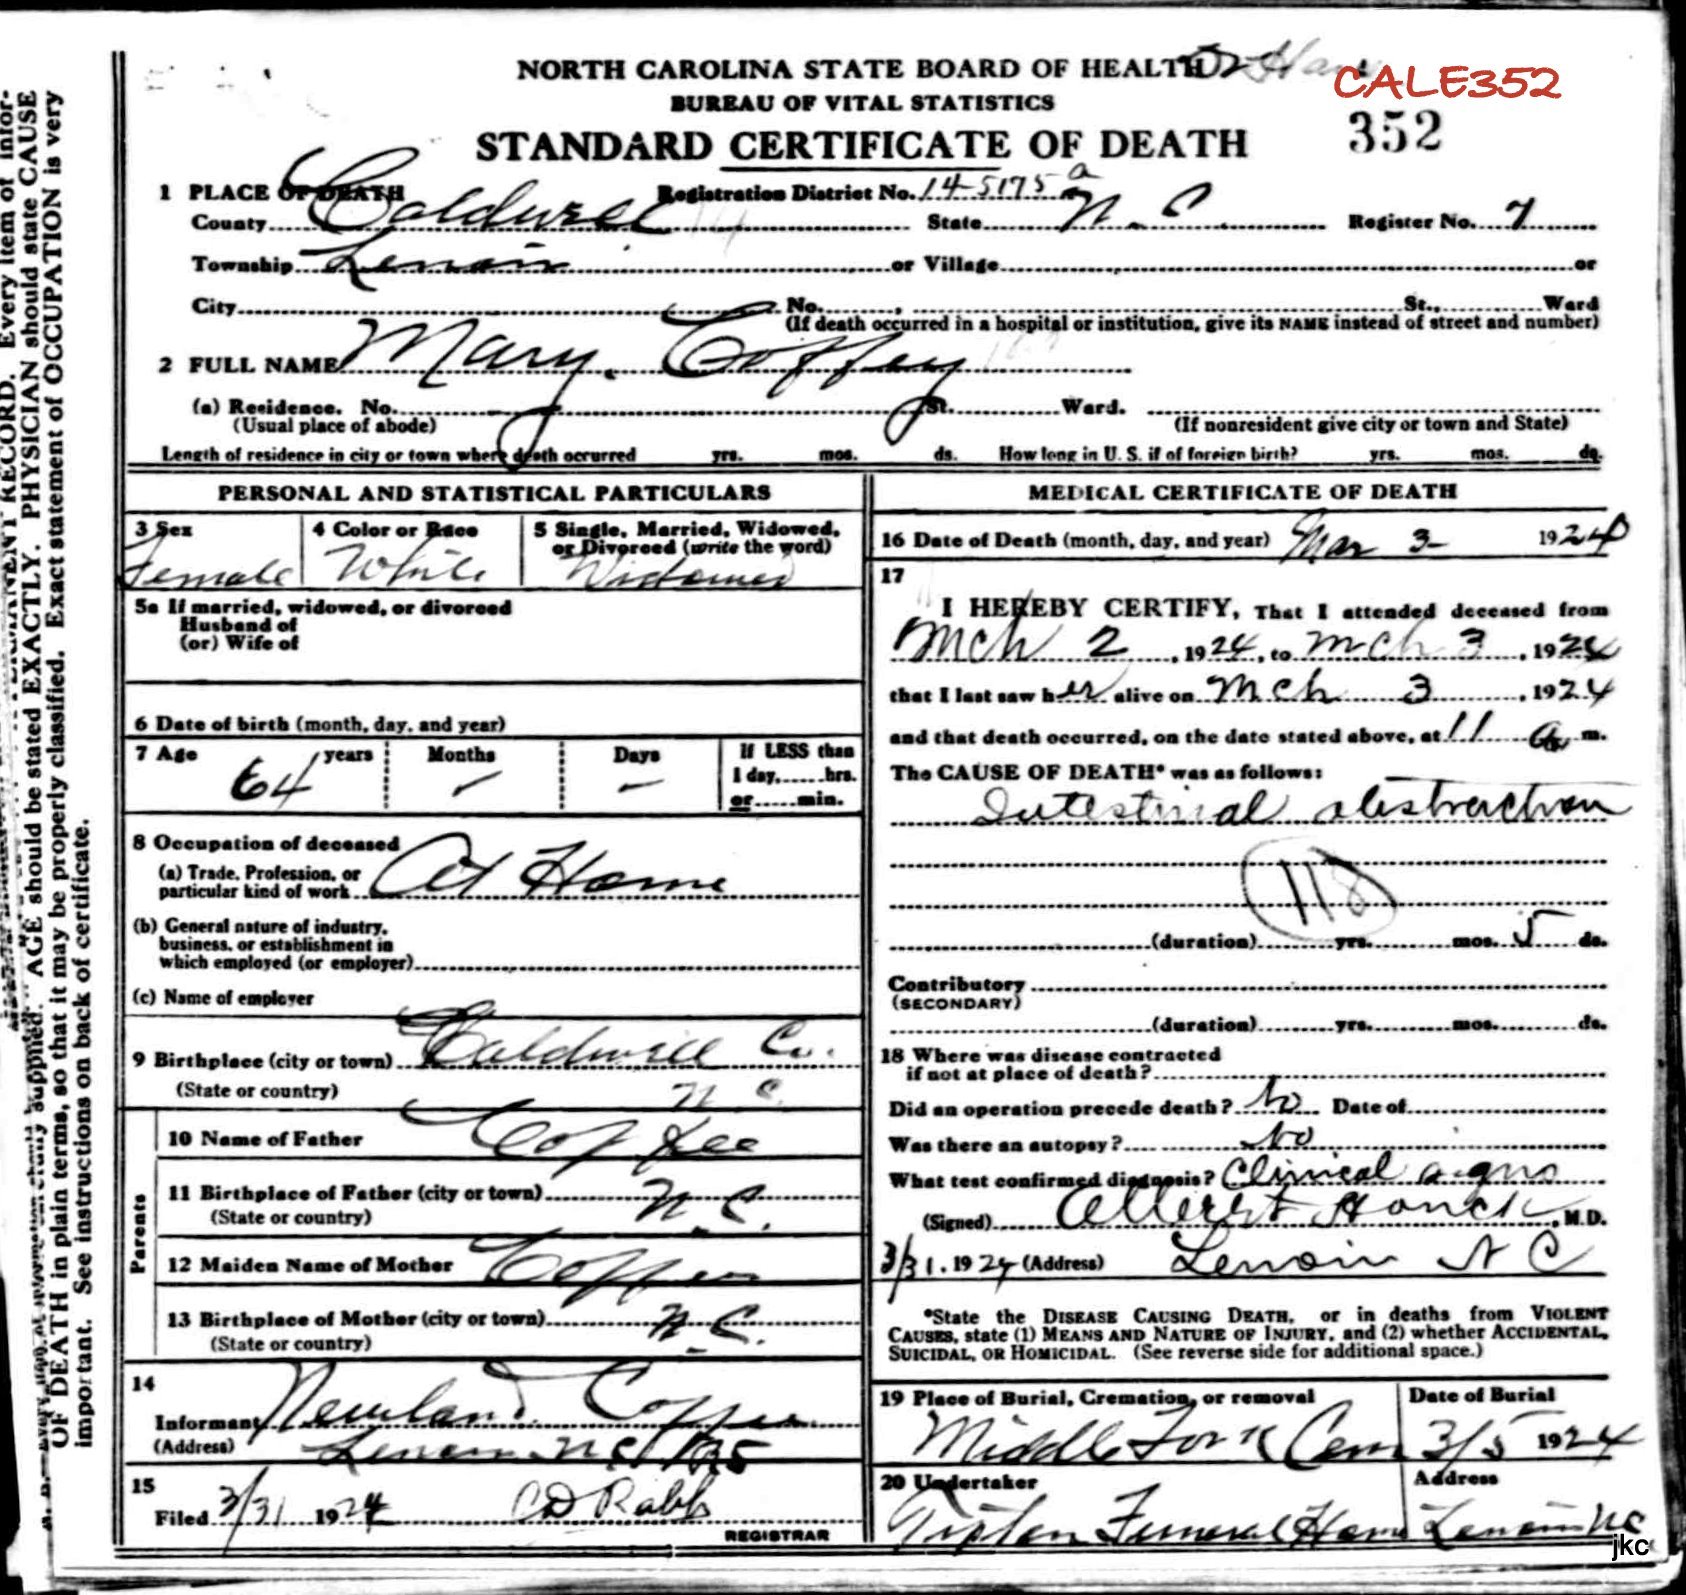 NORTH CAROLINA STATE BOARD OF HEALTH
CALE352
BUREAU OF VITAL STATISTICS
STANDARD CERTIFICATE OF DEATH
352
1 PLACE OF DEATH Registration District No. 14-5175 a
County Caldwell State N. C. Register No. 7
Township Lenoir or Village or
City No. , St., Ward
(If death occurred in a hospital or institution, give its NAME instead of street and number)
2 FULL NAME Mary Coffey
(a) Residence. No. St. Ward.
(Usual place of abode) (If nonresident give city or town and State)
Length of residence in city or town where death occurred yrs. mos. ds. How long in U. S. if of foreign birth? yrs. mos. ds.
PERSONAL AND STATISTICAL PARTICULARS
3 Sex
Female
4 Color or Race
White
5 Single, Married, Widowed,
or Divorced (write the word)
Widowed
5a If married, widowed, or divorced
Husband of
(or) Wife of
6 Date of birth (month, day, and year)
7 Age 64 years
Months -
Days -
If LESS than
1 day, hrs.
or min.
8 Occupation of deceased
(a) Trade, Profession, or
particular kind of work At Home
(b) General nature of industry,
business, or establishment in
which employed (or employer)
(c) Name of employer
9 Birthplace (city or town) Caldwell Co.
(State or country) N C
Parents
10 Name of Father
11 Birthplace of Father (city or town) N. C.
(State or country)
12 Maiden Name of Mother Coffey
13 Birthplace of Mother (city or town) N. C.
(State or country)
14
Informant Newland Coffey
(Address) Lenoir N.C. R5
15
Filed 3/31 1924 C D Rabb
REGISTRAR
MEDICAL CERTIFICATE OF DEATH
16 Date of Death (month, day, and year) Mar 3- 1924
17
I HEREBY CERTIFY, That I attended deceased from
Mch 2, 1924, to Mch 3, 1924
that I last saw her alive on Mch 3, 1924
and that death occurred, on the date stated above, at 11 a. m.
The CAUSE OF DEATH* was as follows:
Intestinal obstruction
118
(duration) yrs. mos. 5 ds.
Contributory
(SECONDARY)
(duration) yrs. mos. ds.
18 Where was disease contracted
if not at place of death?
Did an operation precede death? No Date of
Was there an autopsy? No
What test confirmed diagnosis? Clinical signs
(Signed) Houck, M.D.
3/31, 1924 (Address) Lenoir N C
*State the DISEASE CAUSING DEATH, or in deaths from VIOLENT
CAUSES, state (1) MEANS AND NATURE OF INJURY, and (2) whether ACCIDENTAL,
SUICIDAL, OR HOMICIDAL. (See reverse side for additional space.)
19 Place of Burial, Cremation, or removal
Middle Fork Cem
Date of Burial
3/5 1924
20 Undertaker
Funeral Home
Address
Lenoir NC
jkc
PERMANENT RECORD. Every item of infor-
should be stated EXACTLY. PHYSICIAN should state CAUSE
OF DEATH in plain terms, so that it may be properly classified. Exact statement of OCCUPATION is very
important. See instructions on back of certificate.